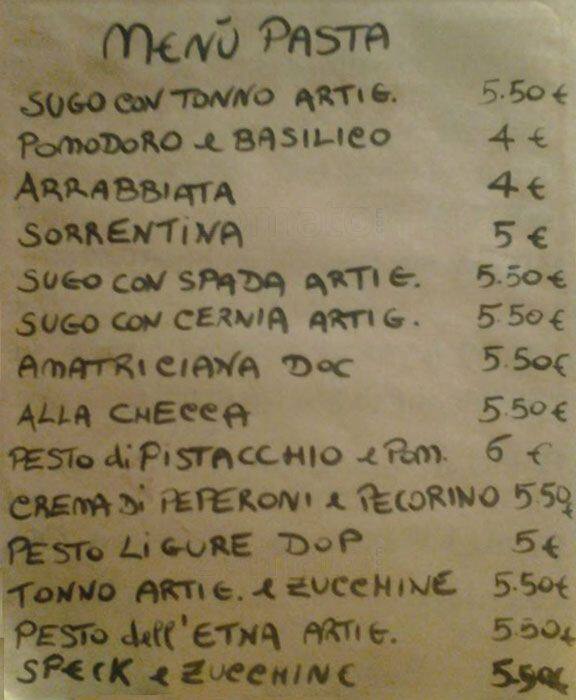 MENÙ PASTA
SUGO CON TONNO ARTIG. 5.50 €
POMODORO e BASILICO 4 €
ARRABBIATA 4 €
SORRENTINA 5 €
SUGO CON SPADA ARTIG. 5.50€
SUGO CON CERNIA ARTIG. 5.50€
AMATRICIANA DOC 5.50€
ALLA CHECCA 5.50€
PESTO di PISTACCHIO e Pom. 6 €
CREMA Di PEPERONI e PECORINO 5.50€
PESTO LIGURE DOP 5€
TONNO ARTIG. e ZUCCHINE 5.50€
PESTO dell'ETNA ARTIG. 5.50€
SPECK e ZUCCHINE 5.50€